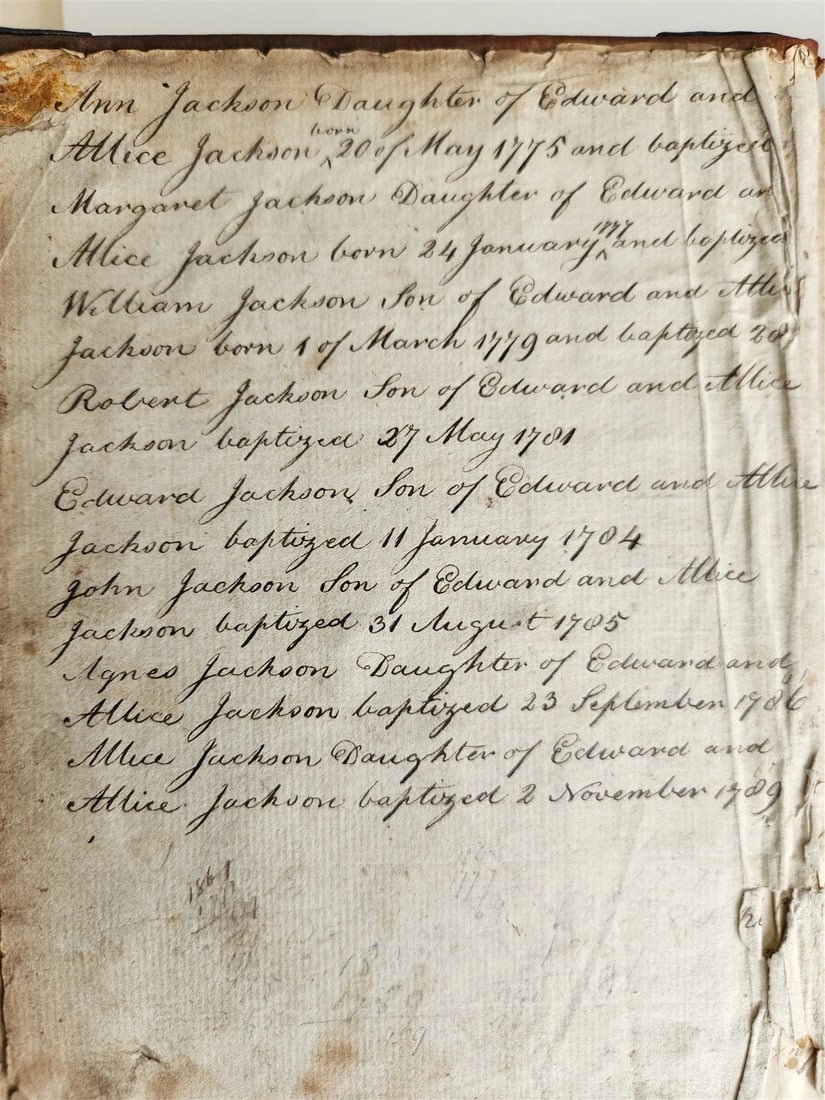 Ann Jackson Daughter of Edward and
Allice Jackson born 20 of May 1775 and baptized
Margaret Jackson Daughter of Edward an
Allice Jackson born 24 January 1777 and baptized
William Jackson Son of Edward and Allic
Jackson born 1 of March 1779 and baptized 28
Robert Jackson Son of Edward and Allice
Jackson baptized 27 May 1781
Edward Jackson Son of Edward and Allice
Jackson baptized 11 January 1784
John Jackson Son of Edward and Allice
Jackson baptized 31 August 1785
Agnes Jackson Daughter of Edward and
Allice Jackson baptized 23 September 1786
Allice Jackson Daughter of Edward and
Allice Jackson baptized 2 November 1789
1861